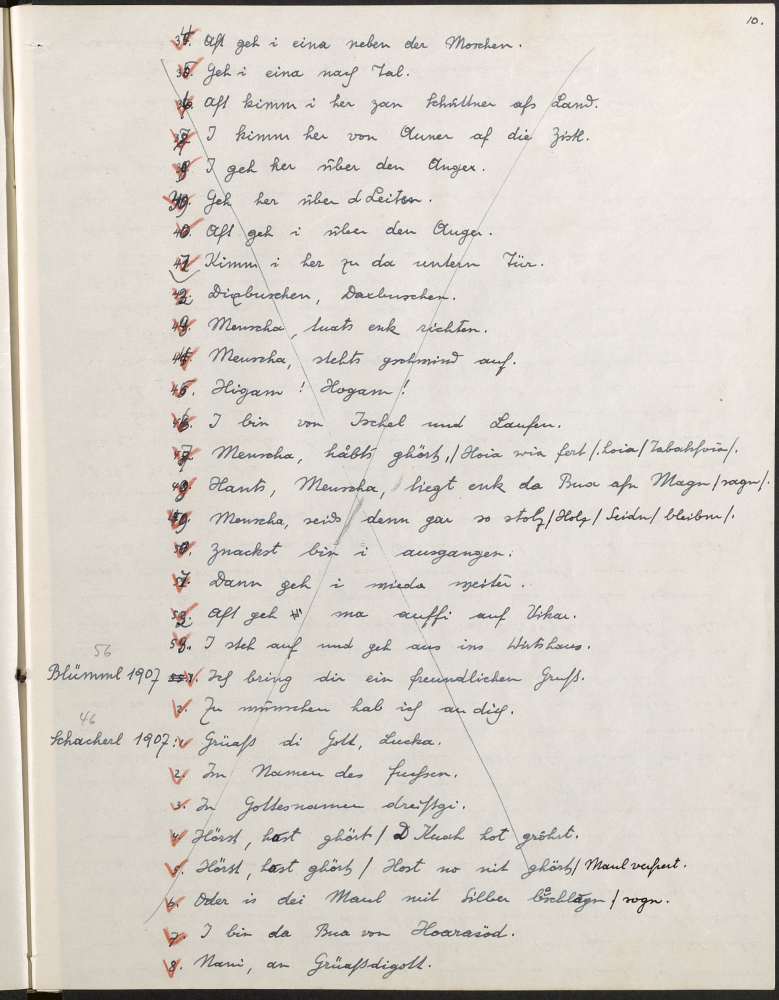 10.
34. Aft geh i eina neben der Moschen.
35. Geh i eina nach Tal.
36. Aft kimm i her zan Schüttner afs Land.
37. I kimm her von Auner af die Zistl.
38. I geh her über den Anger.
39. Geh her über d Leiten.
40. Aft geh i über den Anger.
41. Kimm i her zu da untern Tür.
42. Dixbuschen, Daxbuschen.
43. Menscha, tuats enk richten.
44. Menscha, stehts gschwind auf.
45. Higam! Hogam!
46. I bin von Ischel und Laufen.
47. Menscha, håbts ghört,/Hoia wia fert/. hoia/Tabak
48. Hants, Menscha, liegt enk da Bua afn Magn/sagn/.
49. Menscha, seids denn gar so stolz/Holz/ Seidn/ bleibm/.
50. Znackst bin i ausgangen.
51. Dann geh i wieda weiter.
52. Aft geh ma auffi auf Vikar.
53. I steh auf und geh aus ins Wirtshaus.
56
Blümml 1907 1. Ich bring dir ein freundlichen Gruß.
2. Zu wünschen hab ich an dich.
46
Schacherl 1907: 1. Grüaß di Gott, Lucka.
2. Im Namen des
3. In Gottesnamen dreißgi.
4. Hörst, hast ghört/ D Kuah hot gröhrt.
5. Hörst, hast ghört/ Host no nit ghört/ Maul versperrt.
6. Oder is dei Maul mit Silber bschlågn/ sogn.
7. I bin da Bua von Hoarasöd.
8. Nani, an Grüaßdigott.